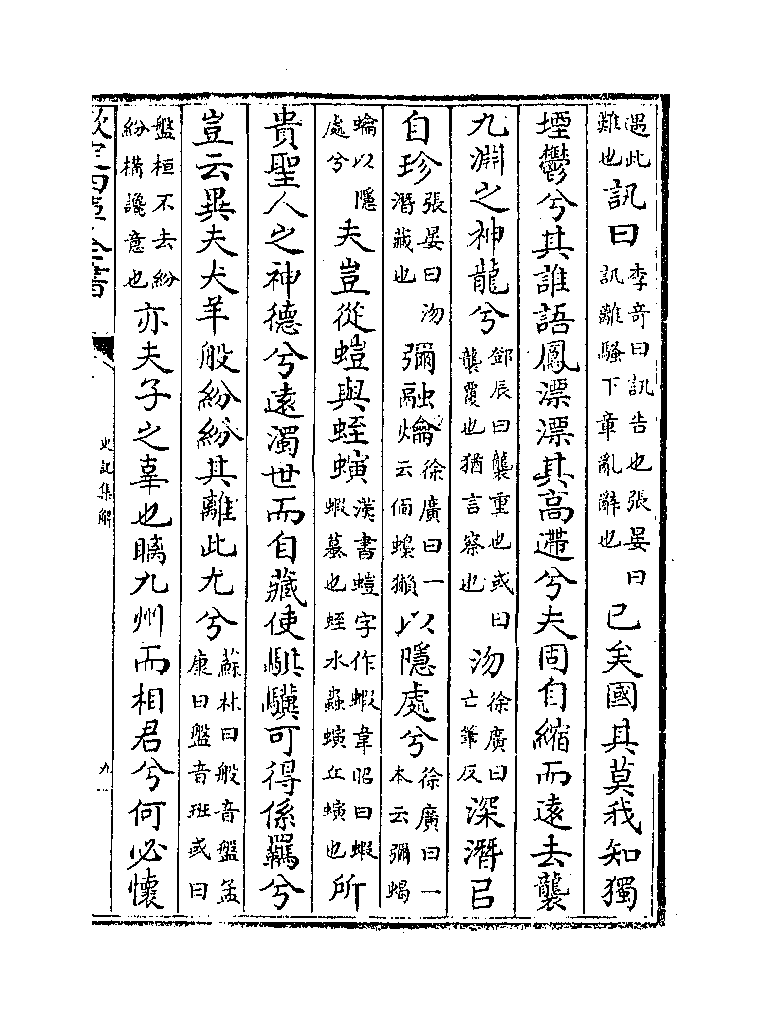 遇此難也訊曰李奇曰訊告也張晏曰訊離騷下章亂辭也已矣國其莫我知獨
堙鬱兮其誰語鳳漂漂其高遰兮夫固自縮而遠去襲
九淵之神龍兮鄧辰曰襲重也或曰襲覆也猶言察也沕徐廣曰亡筆反深潛㠯
自珍張晏曰沕潛藏也彌融爚徐廣曰一云偭蟂獺以隱處兮徐廣曰一本云彌蝎
蜦以隱處兮夫豈從螘與蛭螾漢書螘字作蝦韋昭曰蝦蝦蟇也蛭水蟲螾丘螾也所
貴聖人之神德兮遠濁世而自藏使騏驥可得係羈兮
豈云異夫犬羊般紛紛其離此尤兮蘇林曰般音盤孟康曰盤音班或曰
盤桓不去紛紛構讒意也亦夫子之辜也瞝九州而相君兮何必懷
欽定四庫全書
史記集解
九